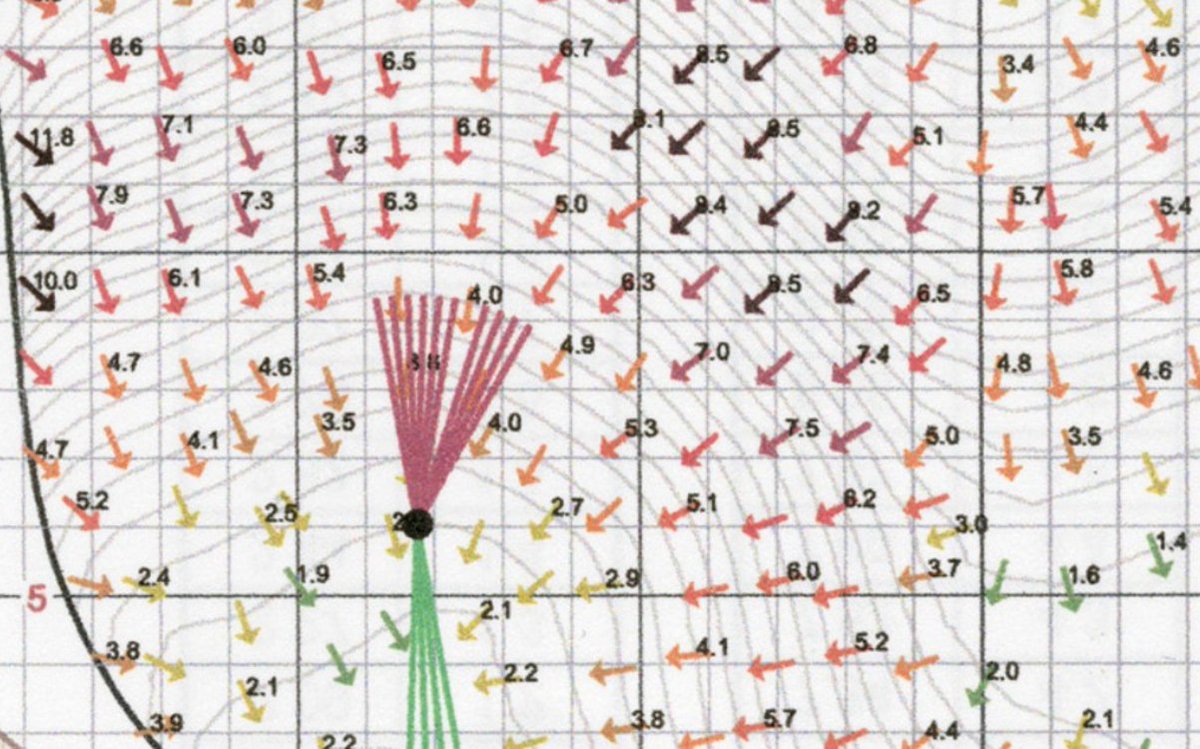 6.6 6.0 6.5 6.7 8.5 6.8 3.4 4.6
11.8 7.1 7.3 6.6 8.1 8.5 5.1 4.4
7.9 7.3 6.3 5.0 8.4 8.2 5.7 5.4
10.0 6.1 5.4 4.0 6.3 8.5 6.5 5.8
4.7 4.6 8.8 4.9 7.0 7.4 4.8 4.6
4.7 4.1 3.5 4.0 5.3 7.5 5.0 3.5
5.2 2.5 2.7 5.1 6.2 3.0 1.4
5 2.4 1.9 2.9 6.0 3.7 1.6
3.8 2.1 4.1 5.2
2.1 2.2 2.0
3.9 2.2 3.8 5.7 4.4 2.1